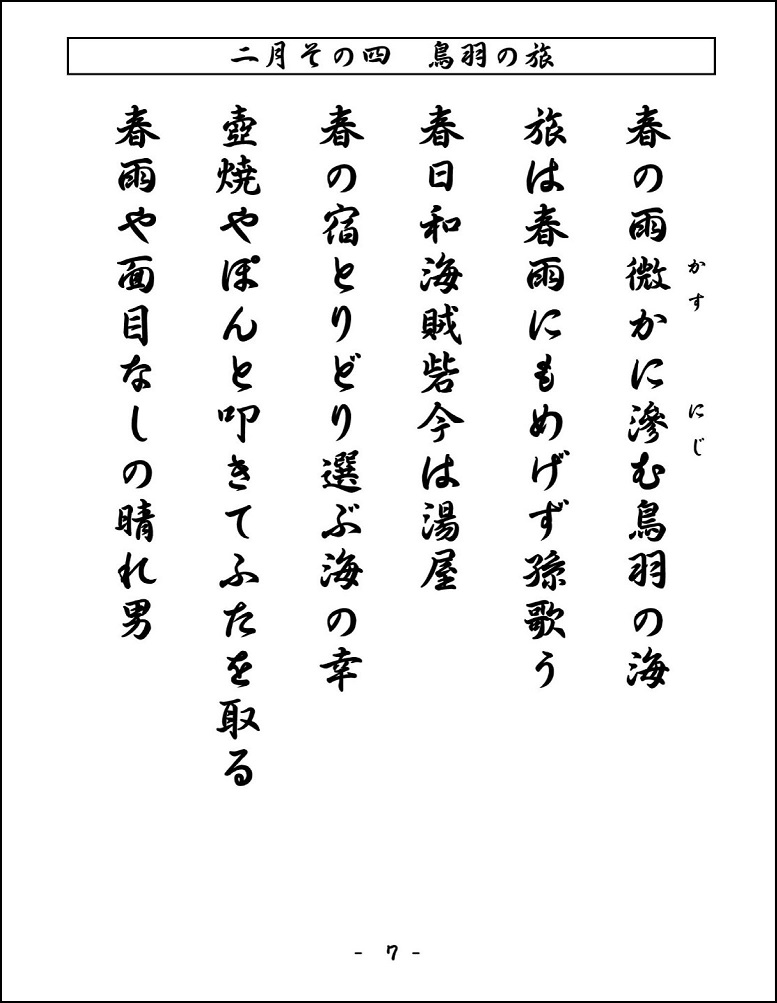 二月その四　鳥羽の旅
春の雨微かに滲む鳥羽の海
かす　にじ
旅は春雨にもめげず孫歌う
春日和海賊砦今は湯屋
春の宿とりどり選ぶ海の幸
壺焼やぽんと叩きてふたを取る
春雨や面目なしの晴れ男
- 7 -